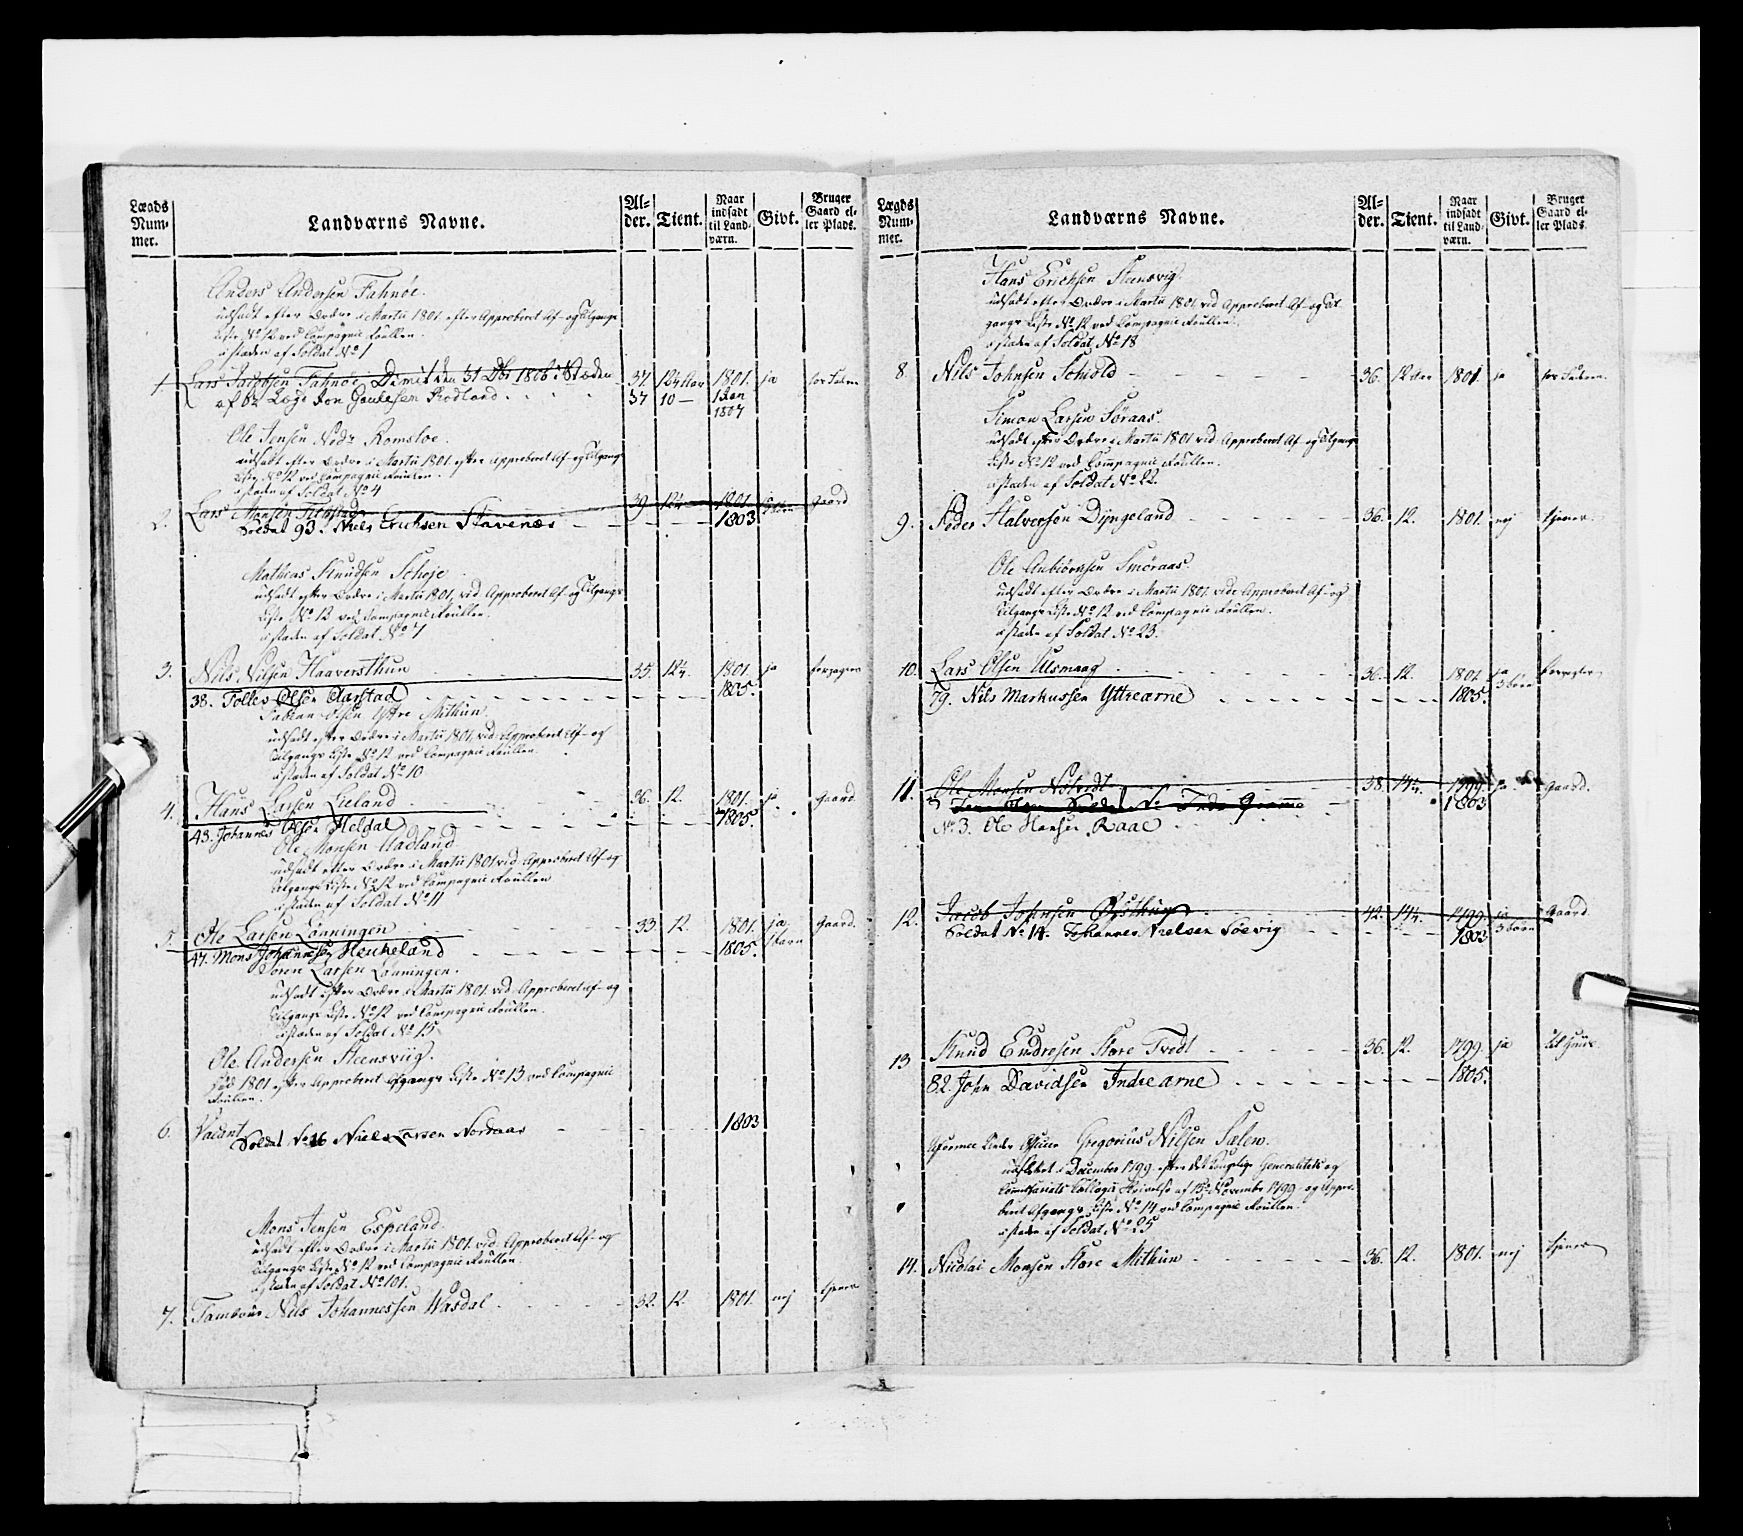 Lægds Num- mer.
Landværns Navne.
Al- der.
Tient.
Naar indsadt til Land- værn.
Givt.
Bruger Gaard el- ler Plads.
Anders Andersen Fahnøe.
udsadt efter Ordre i Martii 1801 efter Approberet Af- og Tilgangs
Liste No 12 ved Compagnie Roullen
istæden af Soldat No 1
1. Lars Jacobsen Fahnøe Dimit den 31 Dbr 1806 37. 12 1801. ja
af 62 Lægd Jon Rødland 37 10 — 1 Jan 1807
Ole Jensen Nedr Romsloe.
udsadt efter Ordre i Martii 1801 efter Approberet Af- og Tilgangs
Liste No 12 ved Compagnie Roullen.
istæden af Soldat No 4
2. Lars Monsen 39. 12 1801. Gaard
Soldat 93. Niels Erichsen Stavenæs 1803
Mathias Knudsen Schoje
udsadt efter Ordre i Martii 1801, vid Approberet Af- og Tilgangs
Liste No 12 ved Compagnie Roullen.
istæden af Soldat No 7
3. Nils Nilsen Haaversthun 35. 12 1801. ja
38. Tollev Olsen Aarstad 1805.
Fabian Olsen Ystre Mithun
udsadt efter Ordre i Martii 1801, vid Approberet Af- og
Tilgangs Liste No 12 ved Compagnie Roullen.
istæden af Soldat No 10
4. Hans Larsen Lieland 36. 12. 1801. ja Gaard
43. Johannes Olsen Heldal 1805.
Ole Monsen Hadland
udsadt efter Ordre i Martii 1801 vid Approberet Af- og
Tilgangs Liste No 12 ved Compagnie Roullen
istæden af Soldat No 11
5. Ole Larsen Lønningen 33. 12. 1801. ja Gaard.
47. Mons Johannesen Heukeland 1805.
Søren Larsen Lønningen.
udsadt efter Ordre i Martii 1801 vid Approberet af- og
Tilgangs Liste No 12 ved Compagnie Roullen.
istæden af Soldat No 15
Ole Andersen Steensviig.
død 1801 efter Approberet Afgangs Liste No 13 ved Compagnie
Roullen.
6. Vacant 1803
Soldat No 16 Niels Larsen Nordaas
Mons Jensen Espeland.
udsadt efter Ordre i Martii 1801 vid Approberet Af- og
Tilgangs Liste No 12 ved Compagnie Roullen.
istæden af Soldat No 101.
7. Tambour Nils Johannessen Wasdal 32. 12. 1801. nej tjener
Lægds Num- mer.
Landværns Navne.
Al- der.
Tient.
Naar indsadt til Land- værn.
Givt.
Bruger Gaard el- ler Plads.
Hans Erichsen Steensvig.
udsadt efter Ordre i Martii 1801 vid Approberet Af- og Til
gangs Liste No 12 ved Compagnie Roullen.
istæden af Soldat No 18
8. Nils Johnsen Schiold 36. 12 1801. ja
Simon Larsen Søraas.
udsadt efter Ordre i Martii 1801 vid Approberet Af- og Tilgangs
Liste No 12 ved Compagnie Roullen.
istæden af Soldat No 22.
9. Peder Halversen Dyngeland 36. 12. 1801. nej tjener.
Ole Anbiørnsen Smøraas
udsadt efter Ordre i Martii 1801. vide Approberet Af- og
Tilgangs Liste No 12 ved Compagnie Roullen.
istæden af Soldat No 23.
10. Lars Olsen Ulsmaag 36. 12. 1801. ja 3 børn
79. Nils Markussen Yttrearne 1805.
11. Ole Monsen 38. 14 1799. ja Gaard.
1803
No 3. Ole Hansen Raae
12. Jacob Johnsen Østhun 42. 14 1799. ja 3 børn Gaard
Soldat No 14. Johannes Nielsen Søevig 1803
13 Knud Endresen Store Tvedt 36. 12. 1799. ja
82. John Davidsen Indre arne 1805.
Gregorius Nilsen Sælen.
udslettet i December 1799 efter det Kongelige Generalitets og
Comissariats Collegii Skrivelse af 13 November 1799 og Appro-
beret Afgangs Liste No 14 ved Compagnie Roullen.
istæden af Soldat No 25
14. Nicolai Monsen Store Mithun 36. 12. 1801. nej tjener